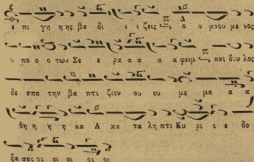 ε πι γη ης βα δι ι ζεις δ υ μνου με νος
υ πο ο των Σε ε ρα α α α φειμ και δυ λος
δε σπο την βα πτι ζειν ου ου με μα α α
θη η η κα Α κα τα λη πτε Κυ ρι ι ε δο
ξα σοι οι οι οι οι